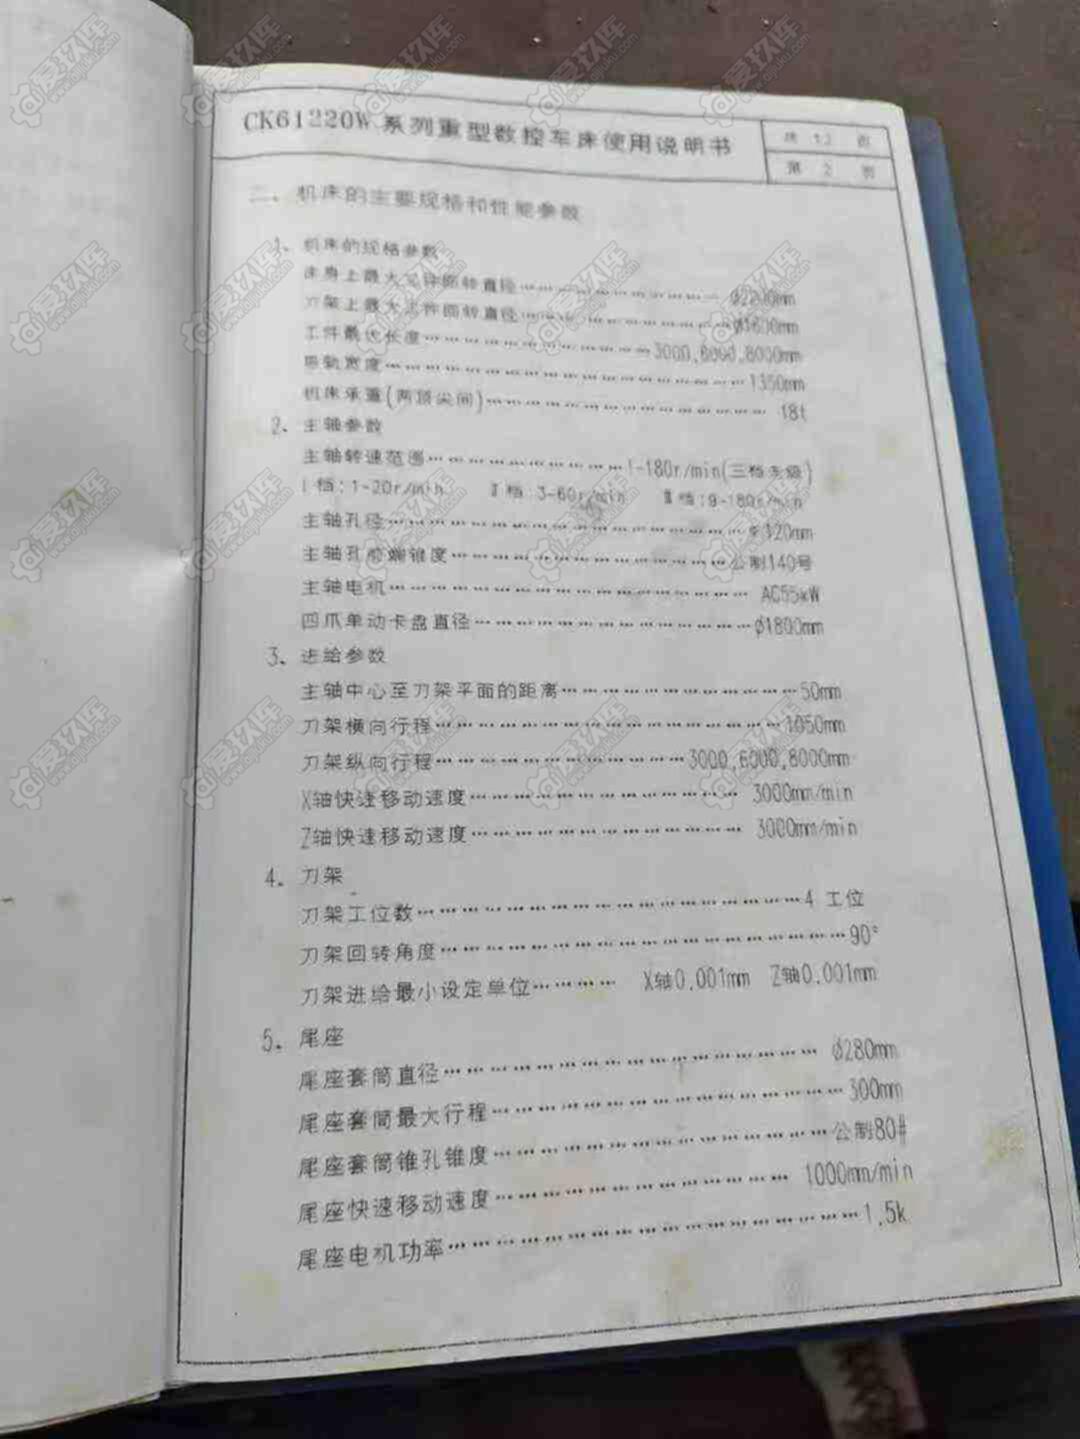 CK61220W 系列重型数控车床使用说明书
共 12 页
第 2 页
二、机床的主要规格和性能参数
1、机床的规格参数
床身上最大工件回转直径………………………… ø2200mm
刀架上最大工件回转直径…………………………ø1600mm
工件最大长度…………………………3000,6000,8000mm
导轨宽度…………………………………………1350mm
机床承重(两顶尖间)………………………………… 18t
2、主轴参数
主轴转速范围………………………1-180r/min(三档无级)
Ⅰ档:1-20r/min Ⅱ档:3-60r/min Ⅲ档:9-180r/min
主轴孔径…………………………………………ø120mm
主轴孔前端锥度………………………………公制140号
主轴电机………………………………………… AC55kW
四爪单动卡盘直径………………………………ø1800mm
3、进给参数
主轴中心至刀架平面的距离…………………………50mm
刀架横向行程………………………………………1050mm
刀架纵向行程……………………………3000,6000,8000mm
X轴快速移动速度……………………………… 3000mm/min
Z轴快速移动速度……………………………… 3000mm/min
4、刀架
刀架工位数……………………………………………4 工位
刀架回转角度………………………………………………90°
刀架进给最小设定单位………… X轴0.001mm Z轴0.001mm
5、尾座
尾座套筒直径………………………………………… ø280mm
尾座套筒最大行程……………………………………… 300mm
尾座套筒锥孔锥度………………………………………公制80#
尾座快速移动速度………………………………… 1000mm/min
尾座电机功率………………………………………………1.5k